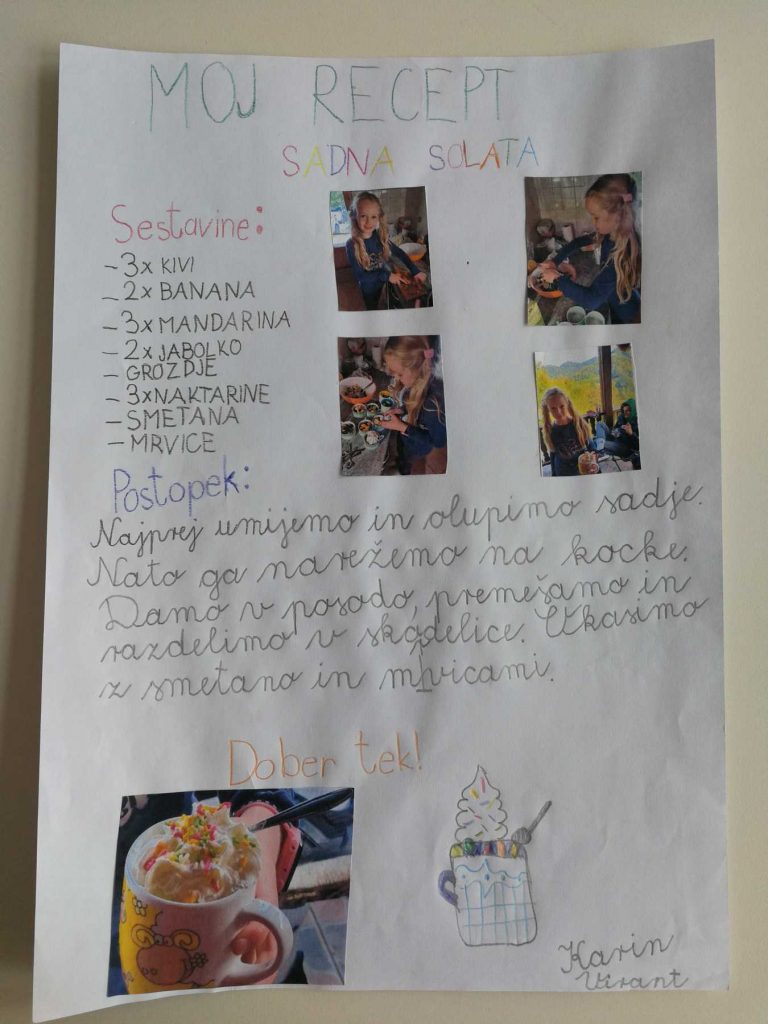 MOJ RECEPT
SADNA SOLATA
Sestavine:
- 3x KIVI
- 2x BANANA
- 3x MANDARINA
- 2x JABOLKO
- GROZDJE
- 3x NAKTARINE
- SMETANA
- MRVICE
Postopek:
Najprej umijemo in olupimo sadje.
Nato ga narežemo na kocke.
Damo v posodo, premešamo in
razdelimo v skodelice. Ukasimo
z smetano in mrvicami.
Dober tek!
Karin
Virant